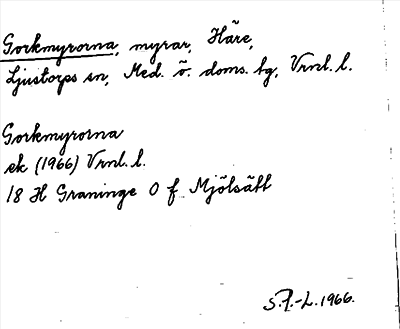 Gorkmyrorna, myrar, Häre,
Ljustorps sn, Med. ö. doms. bg, Vrnl. l.
Gorkmyrorna
ek (1966) Vrnl. l.
18 H Graninge O f Mjölsätt
1966.